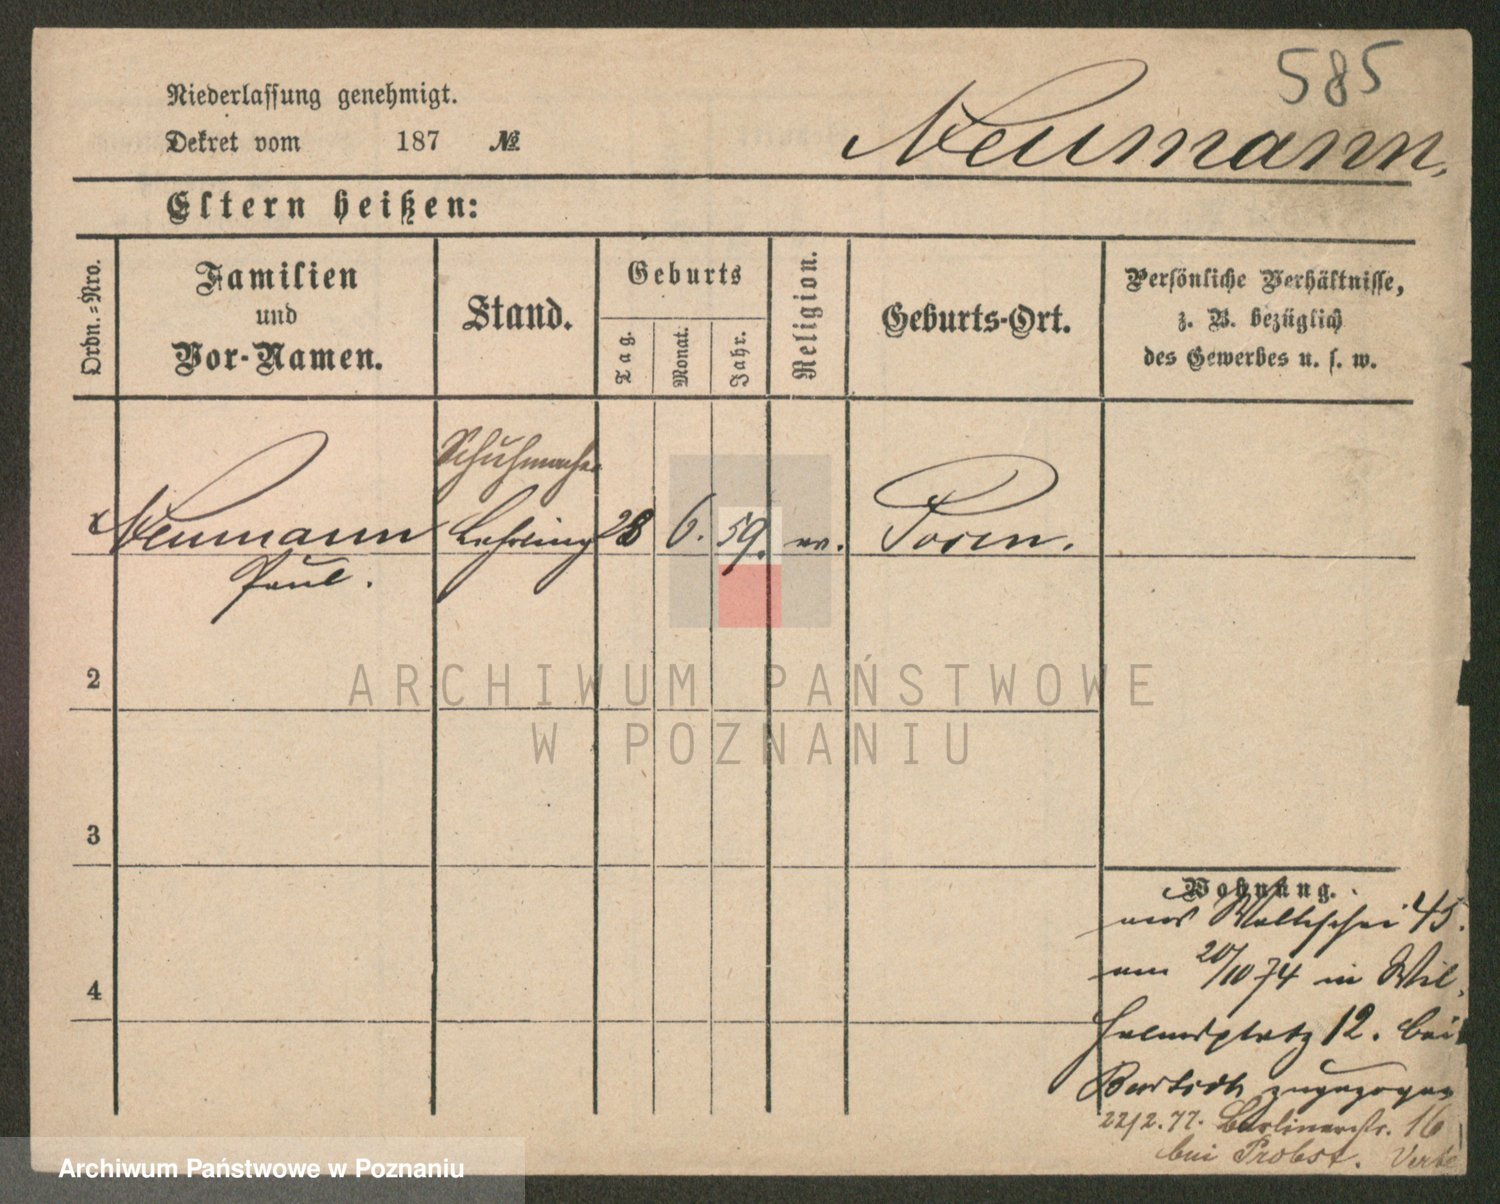 585
Niederlassung genehmigt.
Dekret vom 187 №
Neumann.
Eltern heißen:
Ordn.=Nro.
Familien
und
Vor-Namen.
Stand.
Geburts
Tag.
Monat.
Jahr.
Religion.
Geburts-Ort.
Persönliche Verhältnisse,
z. B. bezüglich
des Gewerbes u. s. w.
Schuhmacher
1 Neumann Lehrling 28 6. 59. ev. Posen.
Paul.
2
3
4
Wohnung.
aus Wallischei 45.
am 20/10 74 in Wil-
helmsplatz 12. bei
zugezogen
22/2.77. Berlinerstr. 16
bei Probst.
ARCHIWUM PAŃSTWOWE
W POZNANIU
Archiwum Państwowe w Poznaniu